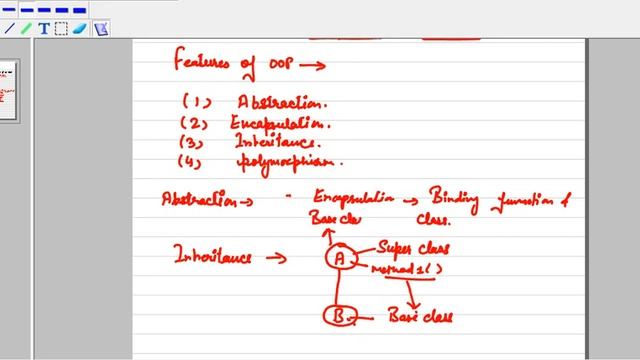 Features of OOP →
(1) Abstraction.
(2) Encapsulation.
(3) Inheritance.
(4) polymorphism.
Abstraction → - Encapsulation → Binding function &
Base cla class.
Inheritance → A Super class
method1()
B Base class